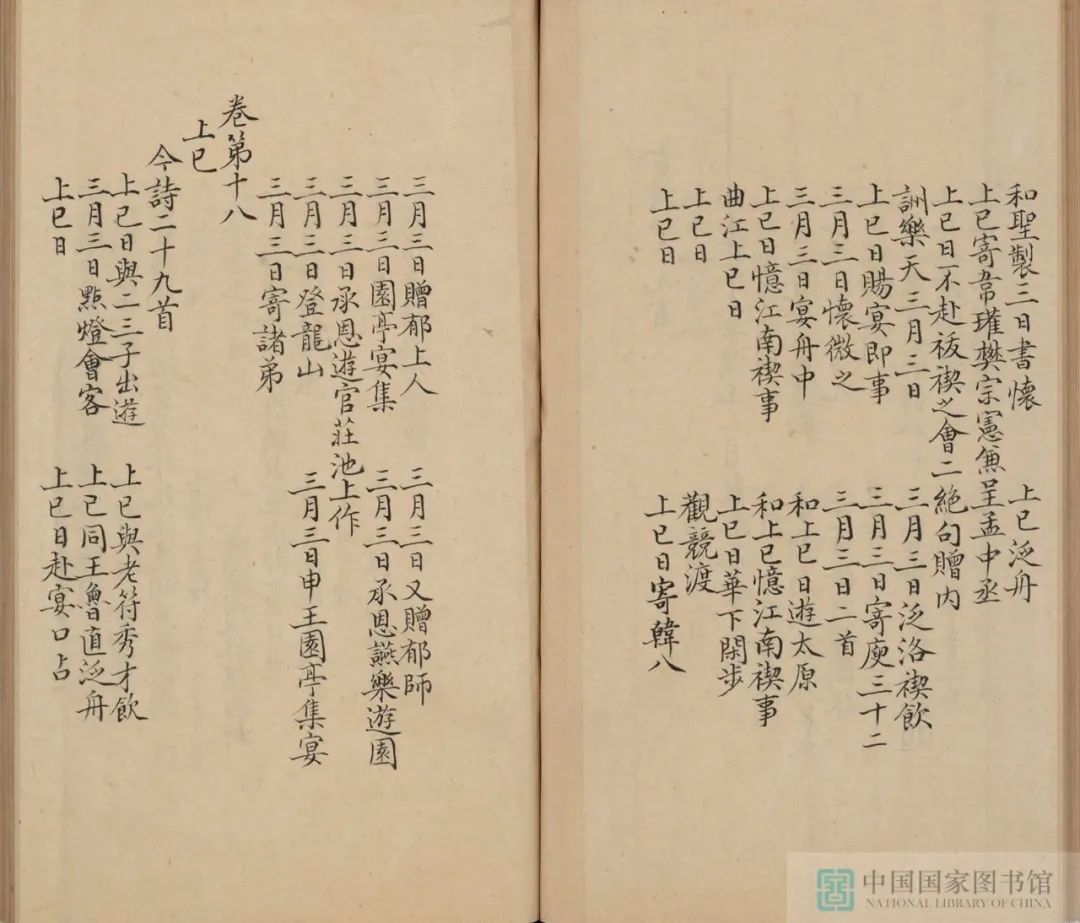 和聖製三日書懷 上巳泛舟
上巳寄韋瓘樊宗憲兼呈孟中丞
上巳日不赴祓禊之會二絶句贈内
詶樂天三月三日 三月三日泛洛禊飲
上巳日賜宴即事 三月三日寄庾三十二
三月三日懷微之 三月三日二首
三月三日宴舟中 和上巳日遊太原
上巳日憶江南禊事 和上巳憶江南禊事
曲江上巳日 上巳日華下閑步
上巳日 觀競渡
上巳日 上巳日寄韓八
三月三日贈郁上人 三月三日又贈郁師
三月三日園亭宴集 三月三日承恩讌樂遊園
三月三日承恩遊官莊池上作
三月三日登龍山 三月三日申王園亭集宴
三月三日寄諸弟
卷第十八
上巳
今詩二十九首
上巳日與二三子出遊 上巳與老符秀才飲
三月三日點燈會客 上巳同王魯直泛舟
上巳日 上巳日赴宴口占
中国国家图书馆
NATIONAL LIBRARY OF CHINA